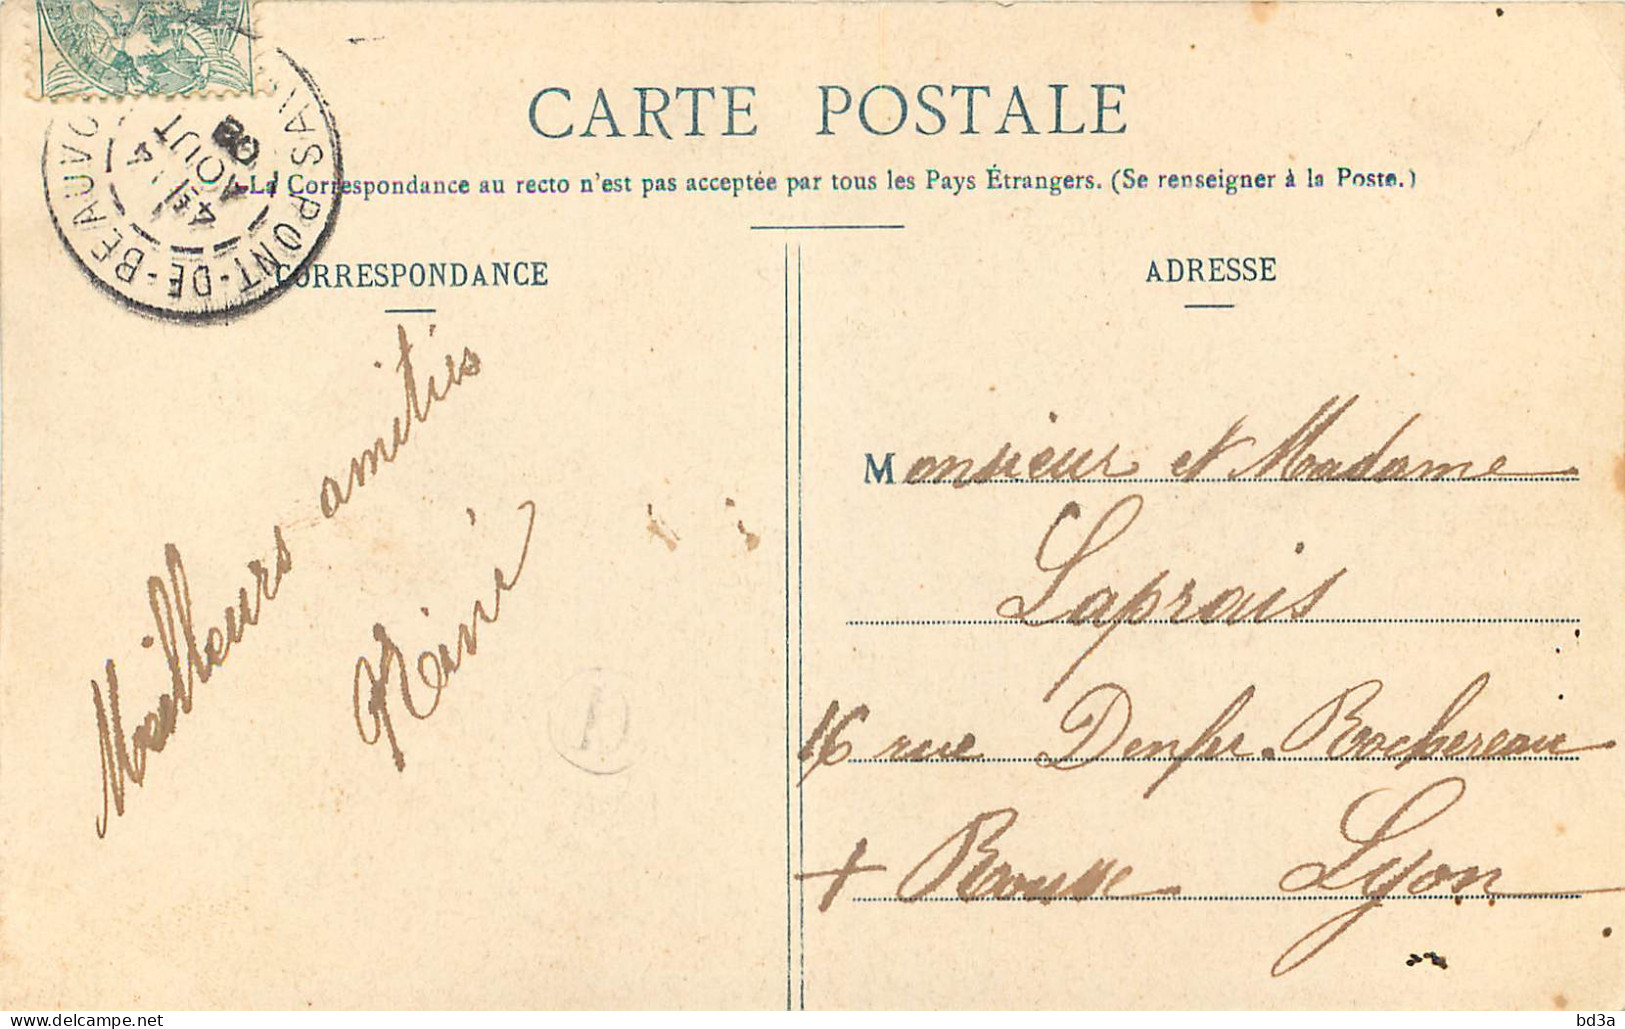 CARTE POSTALE
La Correspondance au recto n'est pas acceptée par tous les Pays Étrangers. (Se renseigner à la Poste.)
PONT-DE-BEAUVO
AOUT
CORRESPONDANCE
Meilleurs amitiés
Réné
ADRESSE
Monsieur et Madame
Laprais
16 rue Denfer-Rochereau
+ Rousse Lyon
bd3a